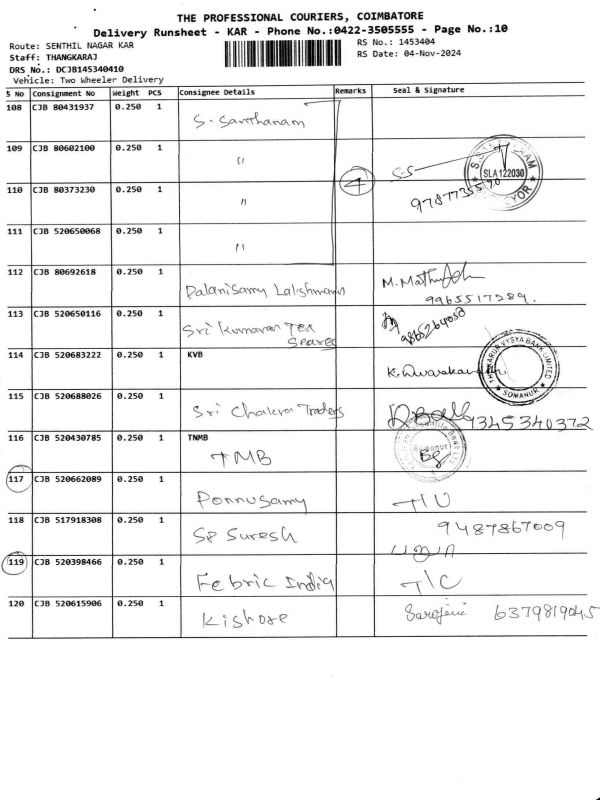 THE PROFESSIONAL COURIERS, COIMBATORE
Delivery Runsheet - KAR - Phone No.:0422-3505555 - Page No.:10
Route: SENTHIL NAGAR KAR
RS No.: 1453404
Staff: THANGKARAJ
RS Date: 04-Nov-2024
DRS No.: DCJB145340410
Vehicle: Two Wheeler Delivery
S No Consignment No Weight PCS Consignee Details Remarks Seal & Signature
108 CJB 80431937 0.250 1 S. Santhanam
109 CJB 80602100 0.250 1 "
4 S-S
SLA122030
110 CJB 80373230 0.250 1 "
111 CJB 520650068 0.250 1 "
112 CJB 80692618 0.250 1 Palanisamy Lakshmanan
9965517289.
113 CJB 520650116 0.250 1 Sri Kumaran Tex
114 CJB 520683222 0.250 1 KVB
THE KARUR VYSYA BANK LIMITED
SOMANUR
115 CJB 520688026 0.250 1 Sri Chakra Traders
9345340372
116 CJB 520430785 0.250 1 TNMB
TMB
117 CJB 520662089 0.250 1 Ponnusamy
118 CJB 517918308 0.250 1 SP Suresh 9487867009
119 CJB 520398466 0.250 1 Febric India T/C
120 CJB 520615906 0.250 1 Kishore Sarojini 6379819045